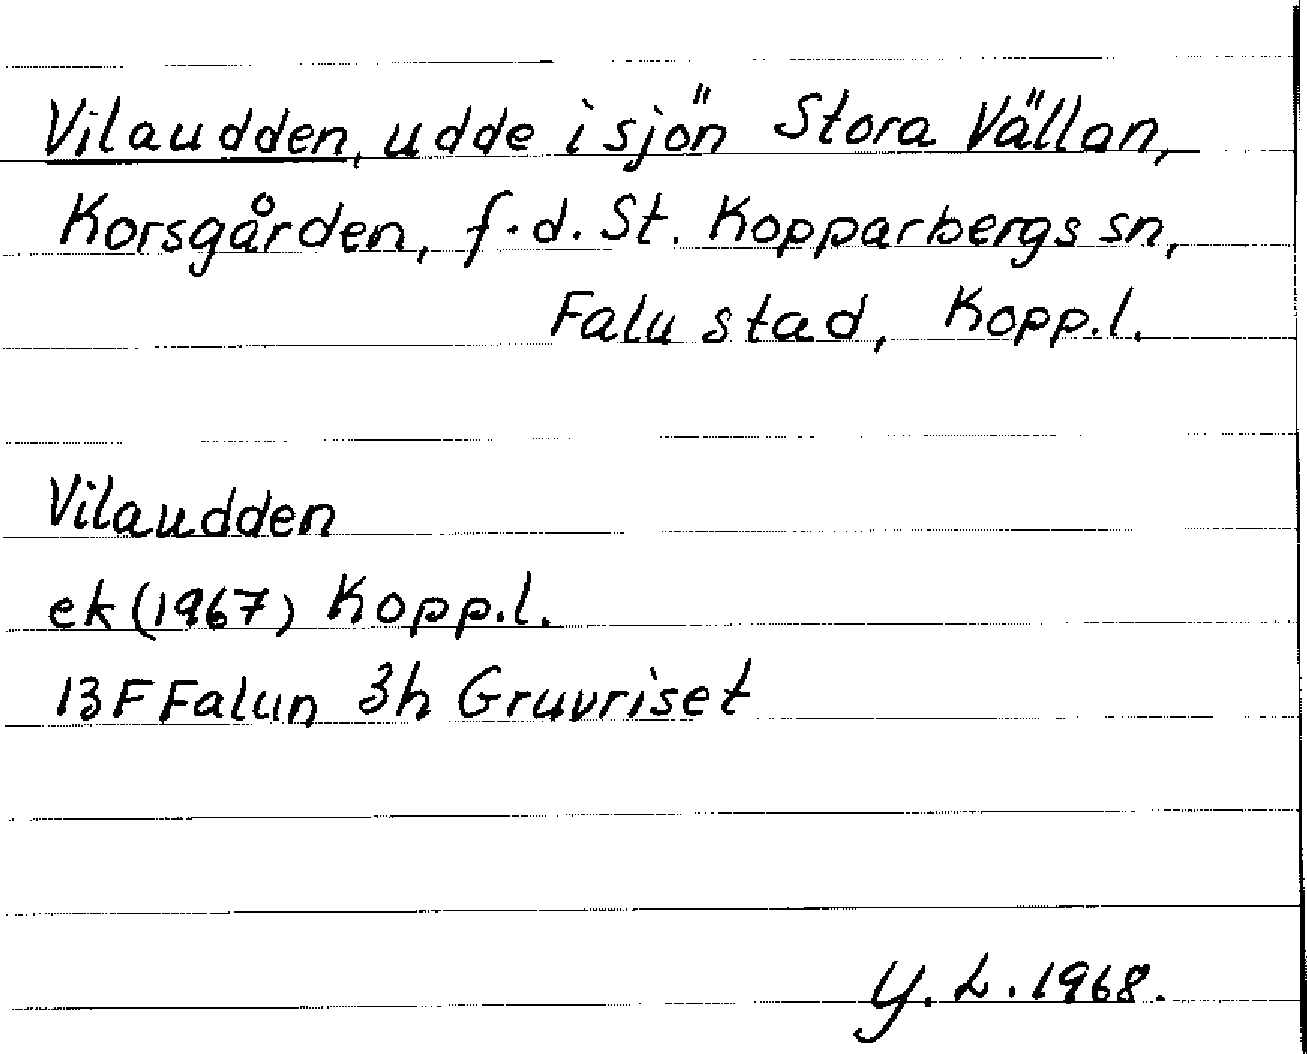 Vilaudden, udde i sjön Stora Vällan,
Korsgården, f.d. St. Kopparbergs sn,
Falu stad, Kopp.l.
Vilaudden
ek (1967) Kopp.l.
13F Falun 3h Gruvriset
Y.L. 1968.